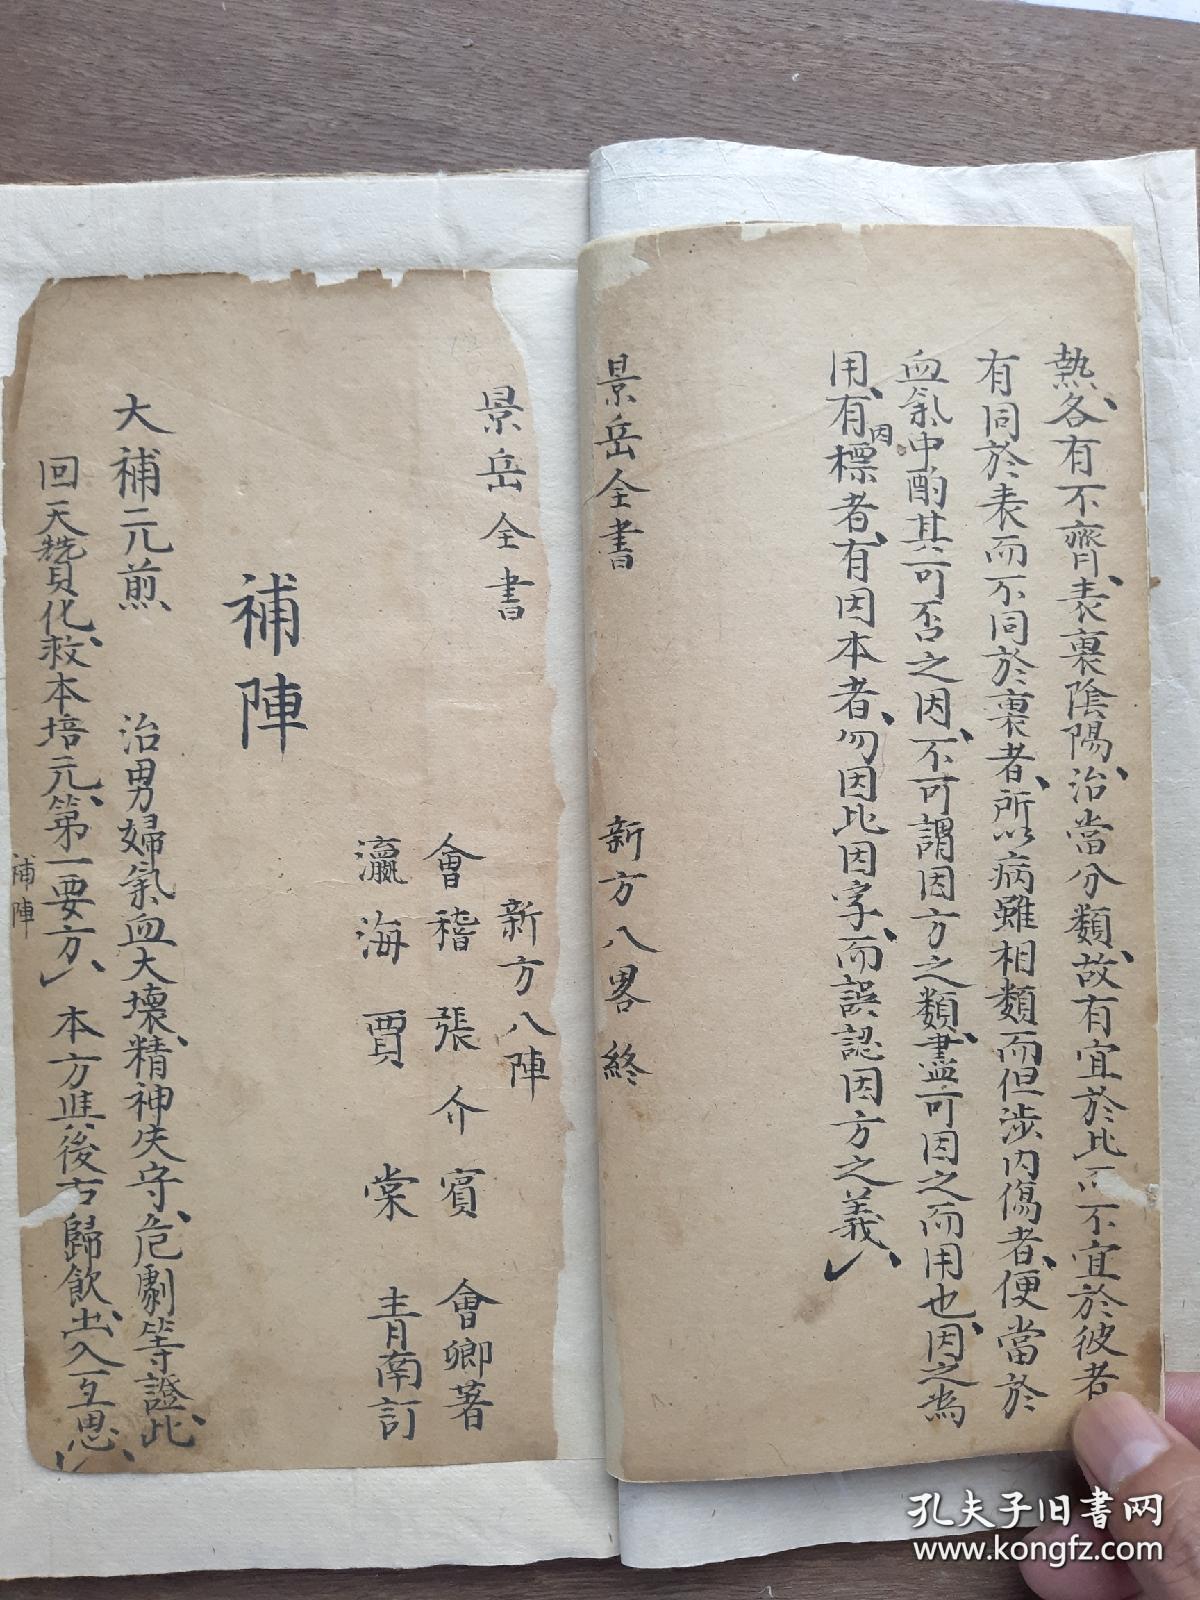 熱、各有不齊、表裏陰陽、治當分類、故有宜於此而不宜於彼者
有同於表而不同於裏者、所以病雖相類而但涉内傷者、便當於
血氣中酌其可否之因、不可謂因方之類、盡可因之而用也、因之為
用、有因標者、有因本者、勿因此因字、而誤認因方之義、
景岳全書 新方八畧終
景岳全書 新方八陣
會稽張介賓會卿著
瀛海賈棠青南訂
補陣
大補元煎 治男婦氣血大壞、精神失守、危劇等證、此
回天贊化、救本培元、第一要方、本方與後右歸飲出入互思、
補陣
孔夫子旧書网
www.kongfz.com